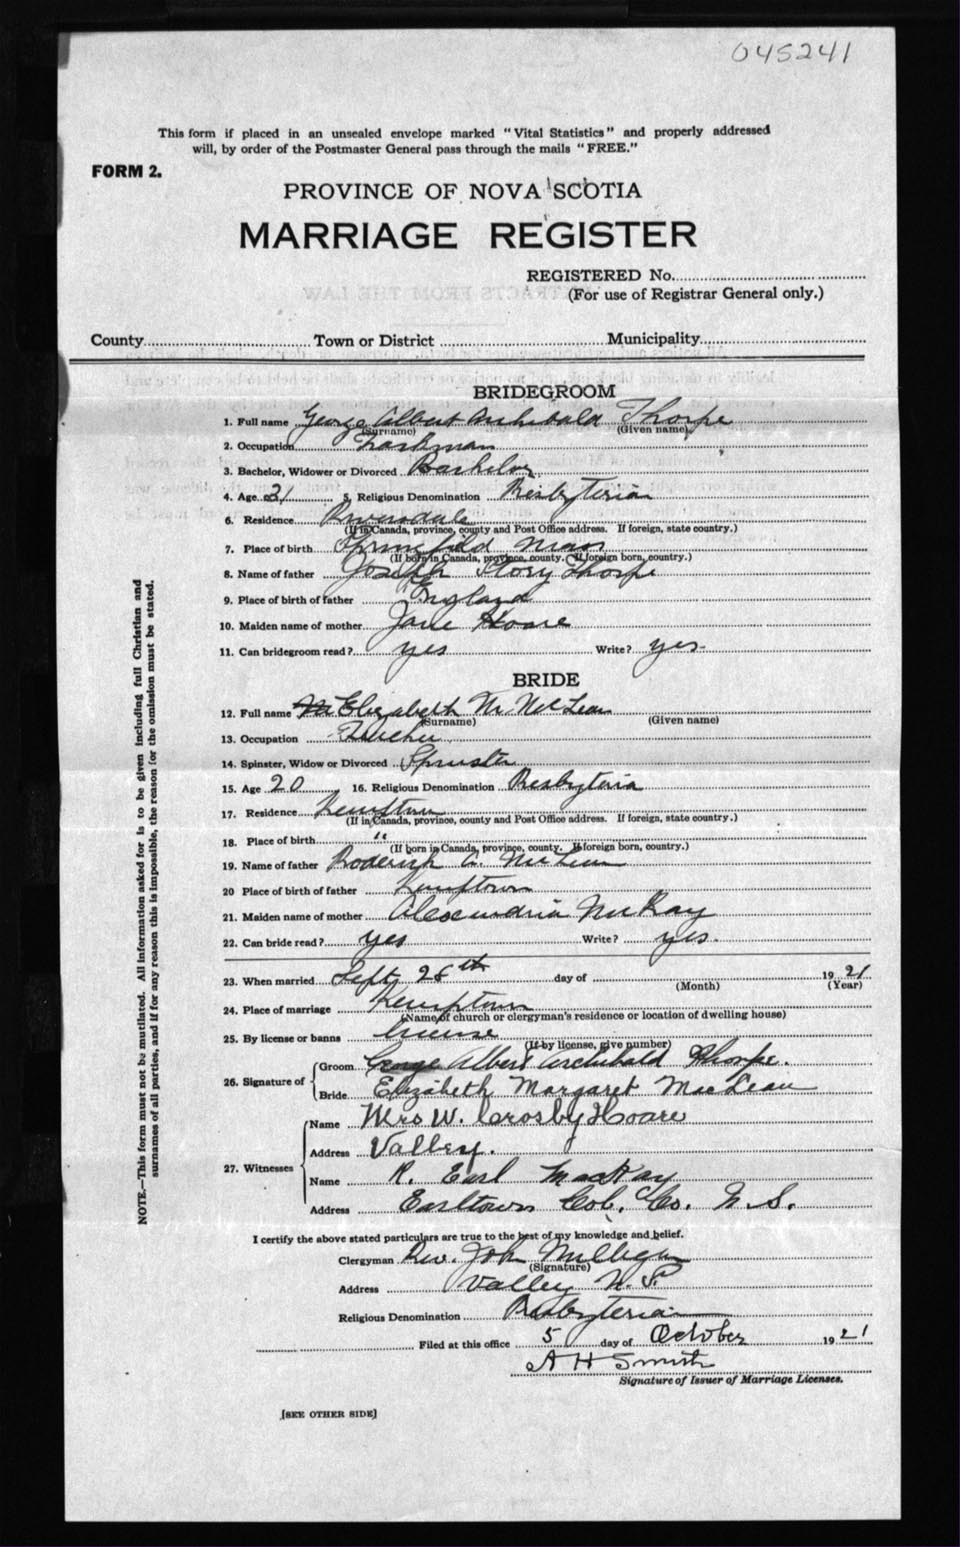 045241
This form if placed in an unsealed envelope marked "Vital Statistics" and properly addressed
will, by order of the Postmaster General pass through the mails "FREE."
FORM 2.
PROVINCE OF NOVA SCOTIA
MARRIAGE REGISTER
REGISTERED No.
(For use of Registrar General only.)
County Town or District Municipality
BRIDEGROOM
1. Full name George Albert Archibald Thorpe
(Surname) (Given name)
2. Occupation
3. Bachelor, Widower or Divorced Bachelor
4. Age 21 5. Religious Denomination Presbyterian
6. Residence Riversdale
(If in Canada, province, county and Post Office address. If foreign, state country.)
7. Place of birth Springfield Mass
(If born in Canada, province, county. If foreign born, country.)
8. Name of father Joseph Story Thorpe
9. Place of birth of father England
10. Maiden name of mother Jane Hoare
11. Can bridegroom read? yes Write? yes.
BRIDE
12. Full name Elizabeth M. McLean
(Surname) (Given name)
13. Occupation Teacher
14. Spinster, Widow or Divorced Spinster
15. Age 20 16. Religious Denomination Presbyteria
17. Residence Kemptown
(If in Canada, province, county and Post Office address. If foreign, state country.)
18. Place of birth "
(If born in Canada, province, county. If foreign born, country.)
19. Name of father Roderick A. McLean
20 Place of birth of father Kemptown
21. Maiden name of mother Alexandria McKay
22. Can bride read? yes Write? yes.
23. When married Sept. 28th day of 1921
(Month) (Year)
24. Place of marriage Kemptown
(Name of church or clergyman's residence or location of dwelling house)
25. By license or banns license
(If by license, give number)
26. Signature of Groom George Albert Archibald Thorpe.
Bride Elizabeth Margaret MacLean
27. Witnesses Name Mrs W. Crosby Hoare
Address Valley.
Name R. Earl MacKay
Address Earltown Col. Co. N.S.
I certify the above stated particulars are true to the best of my knowledge and belief.
Clergyman Rev. John Milligan
(Signature)
Address Valley N.S.
Religious Denomination Presbyterian
Filed at this office 5 day of October 1921
A H Smith
Signature of Issuer of Marriage Licenses.
[SEE OTHER SIDE]
NOTE.—This form must not be mutilated. All information asked for is to be given including full Christian and
surnames of all parties, and if for any reason this is impossible, the reason for the omission must be stated.